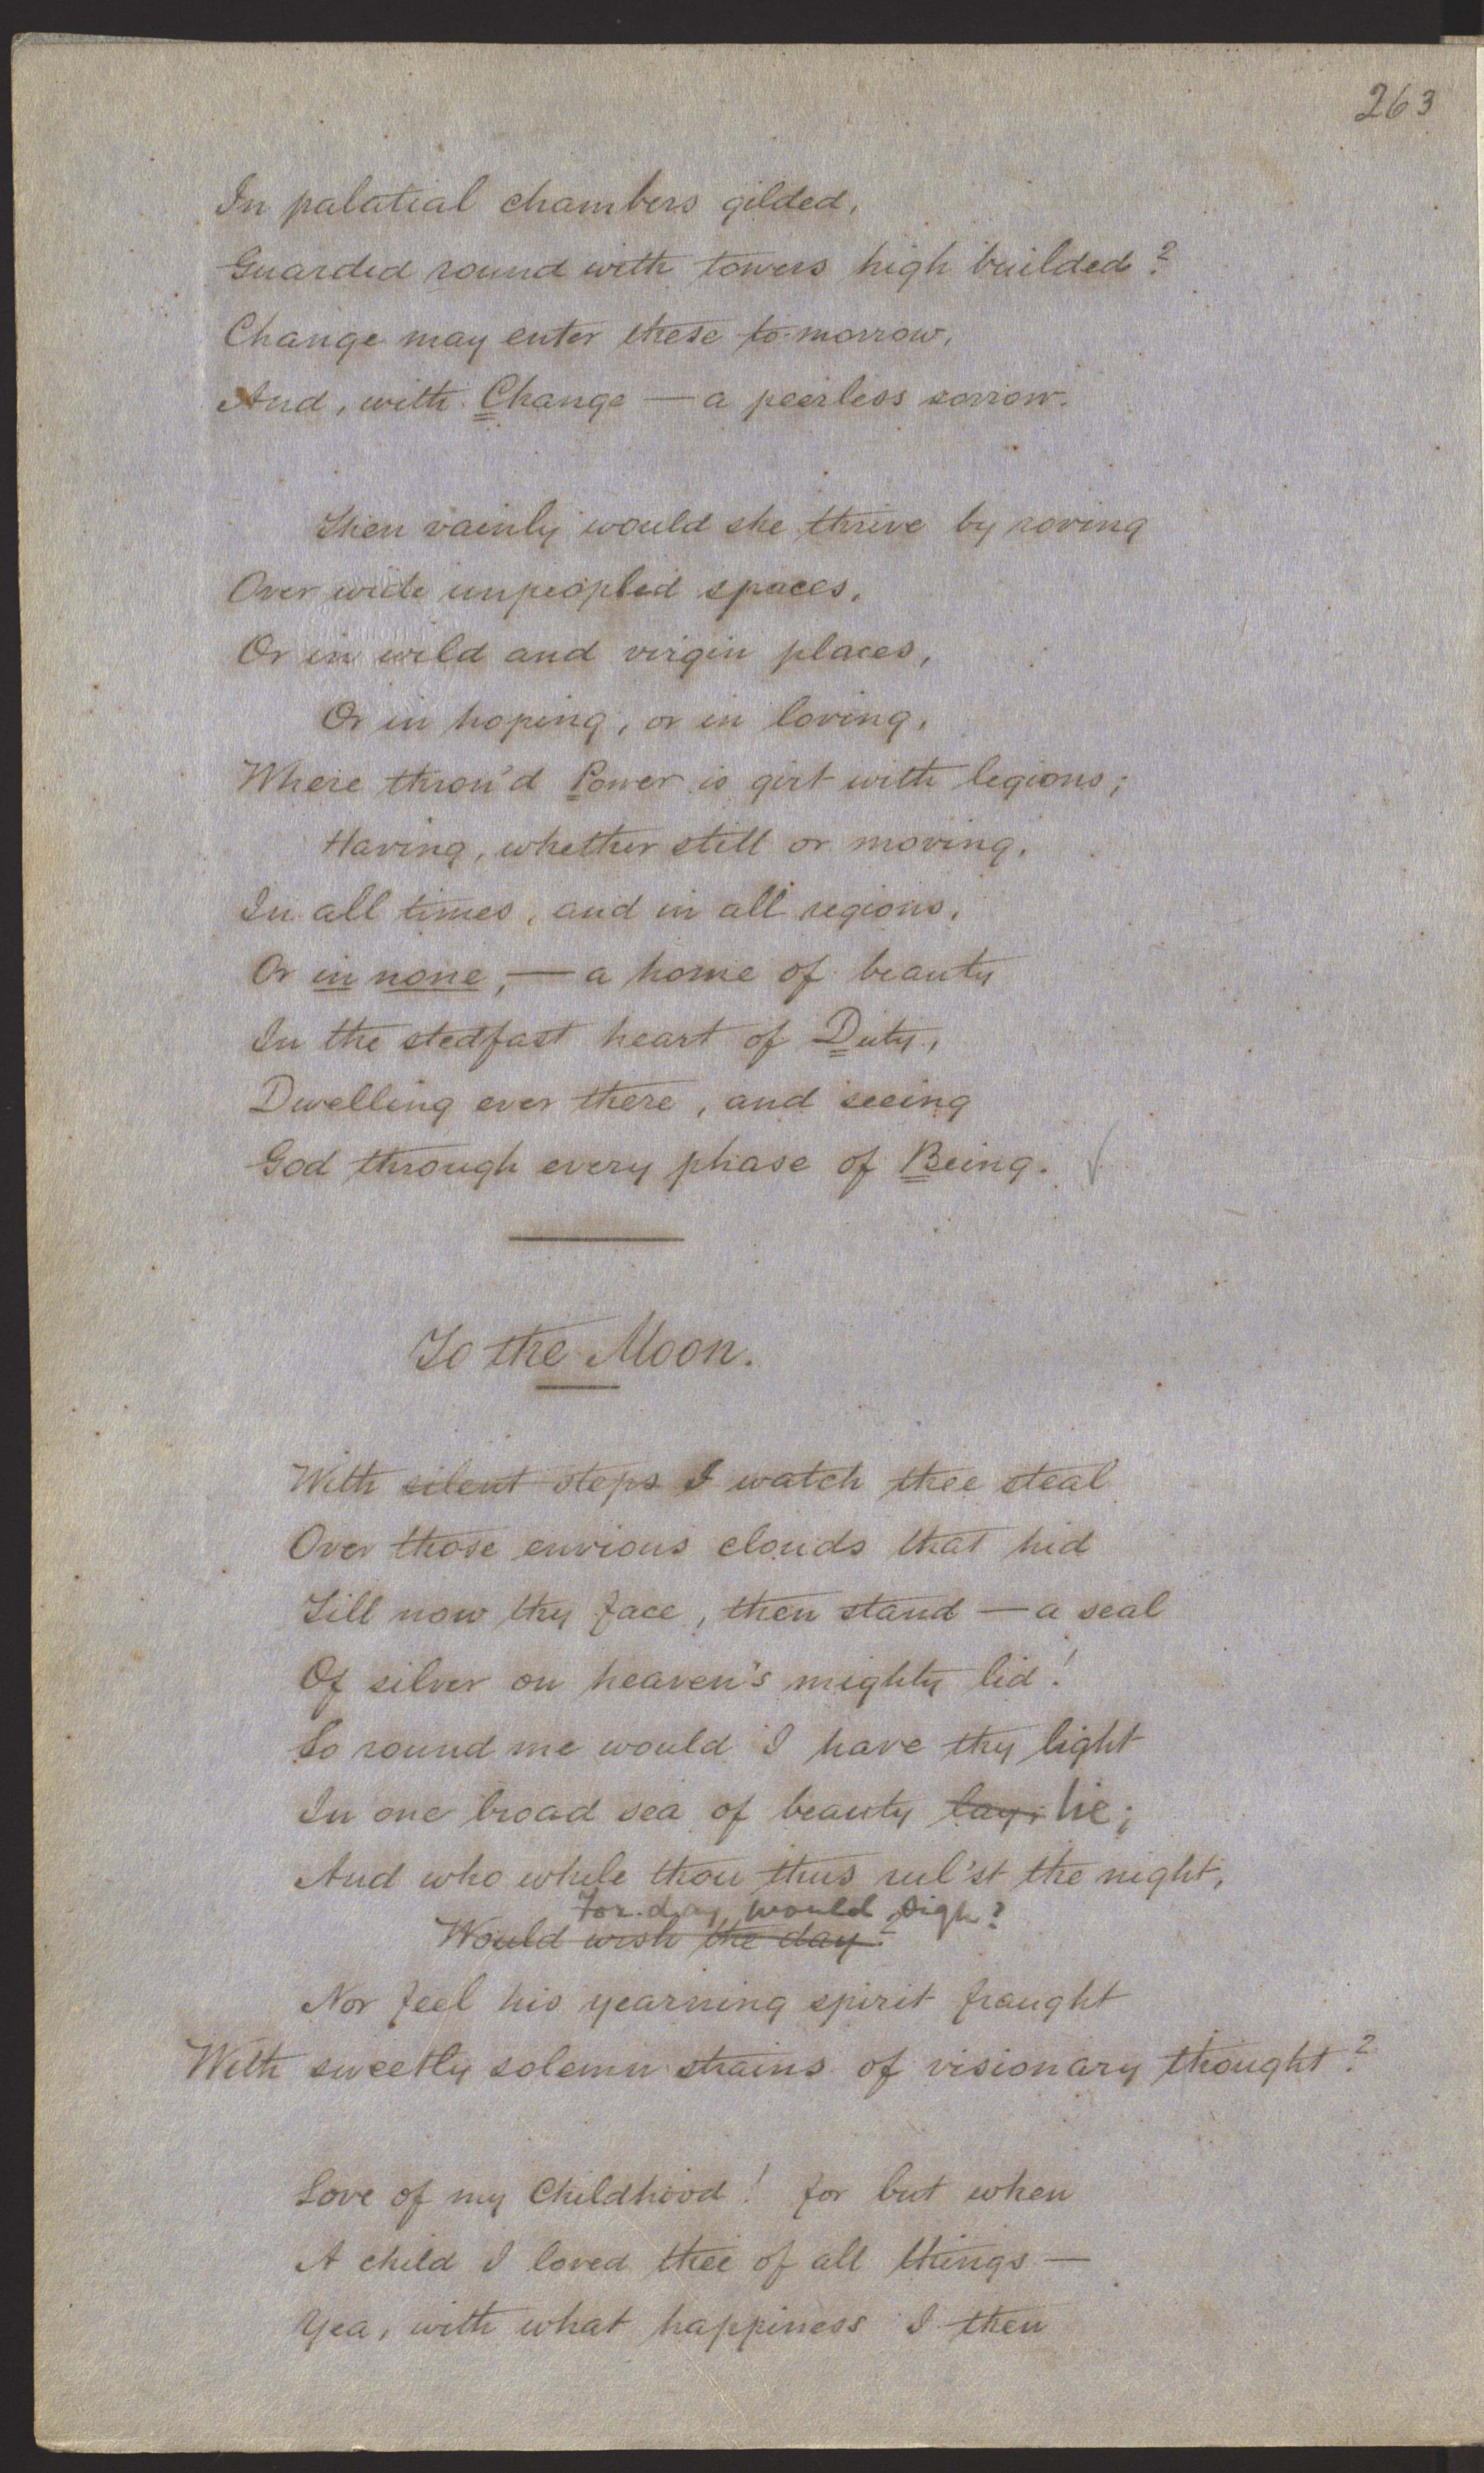 263
In palatial chambers gilded,
Guarded round with towers high builded?
Change may enter these to-morrow,
And, with Change — a peerless sorrow.
Then vainly would she thrive by roving
Over wide unpeopled spaces,
Or in wild and virgin places,
Or in hoping, or in loving,
Where thron'd Power is girt with legions;
Having, whether still or moving,
In all times, and in all regions,
Or in none, — a home of beauty
In the stedfast heart of Duty,
Dwelling ever there, and seeing
God through every phase of Being.
To the Moon.
With silent steps I watch thee steal
Over those envious clouds that hid
Till now thy face, then stand — a seal
Of silver on heaven's mighty lid!
So round me would I have thy light
In one broad sea of beauty lay; lie;
And who while thou thus rul'st the night,
For day would sigh?
Would wish the day?
Nor feel his yearning spirit fraught
With sweetly solemn strains of visionary thought?
Love of my Childhood! for but when
A child I loved thee of all things —
Yea, with what happiness I then